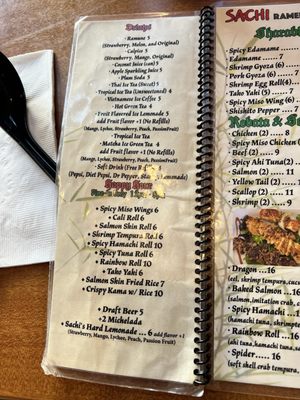 Drinks
- Ramune 5
(Strawberry, Melon, and Original)
- Calpico 5
(Strawberry, Mango, Original)
- Coconut Juice (can) 5
- Apple Sparkling Juice 5
- Plum Soda 5
- Thai Ice Tea (Sweet) 5
- Tropical Ice Tea (Unsweetened) 4
- Vietnamese Ice Coffee 5
- Hot Green Tea 4
- Fruit Flavored Ice Lemonade 5
add Fruit Flavor +1 (No Refills)
(Mango, Lychee, Strawberry, Peach, PassionFruit)
- Tropical Ice Tea
- Matcha Ice Green Tea 4
add Fruit flavor +1 (No Refills)
(Mango, Lychee, Strawberry, Peach, PassionFruit)
- Soft Drink (Free
(Pepsi, Diet Pepsi, Dr Pepper,
Happy Hour
- Spicy Miso Wings 6
- Cali Roll 6
- Salmon Skin Roll 6
- Shrimp Tempura Roll 6
- Spicy Hamachi Roll 10
- Spicy Tuna Roll 6
- Rainbow Roll 10
- Tako Yaki 6
- Salmon Skin Fried Rice 7
- Crispy Kama w/ Rice 10
- Draft Beer 5
+2 Michelada
- Sachi's Hard Lemonade ... 6 add flavor +1
(Strawberry, Mango, Lychee, Peach, Passion Fruit)
SACHI RAMEN
- Spicy Edamame
- Edamame ...... 7
- Shrimp Gyoza (6)
- Pork Gyoza (6)
- Shrimp Egg Roll(4)
- Tako Yaki (5)
- Spicy Miso Wing (6)
- Shishito Pepper
Robata &
- Chicken (2) ...... 8
- Spicy Miso Chicken
- Beef (2) ...... 9
- Spicy Ahi Tuna(2)
- Salmon (2) ...... 11
- Yellow Tail (2)
- Scallop (2) ......
- Shrimp (2) ...... 9
- Dragon ...16
(eel, shrimp tempura,
- Baked Salmon
(salmon,imitation crab,
- Spicy Hamachi
(hamachi tuna, shrimp
- Rainbow Roll ...16
(ahi tuna,hamachi tuna,
- Spider...... 16
(soft shell crab tempura,